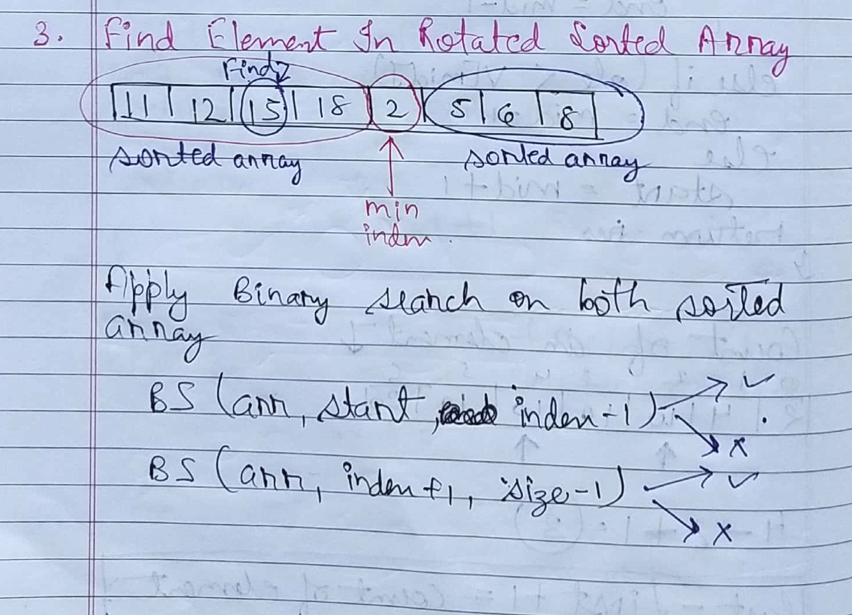 3. Find Element In Rotated Sorted Array
Find
11 12 15 18 2 5 6 8
sorted array sorted array
min
index
Apply Binary search on both sorted
array
BS (arr, start, index-1) ✓
×
BS (arr, index+1, size-1) ✓
×